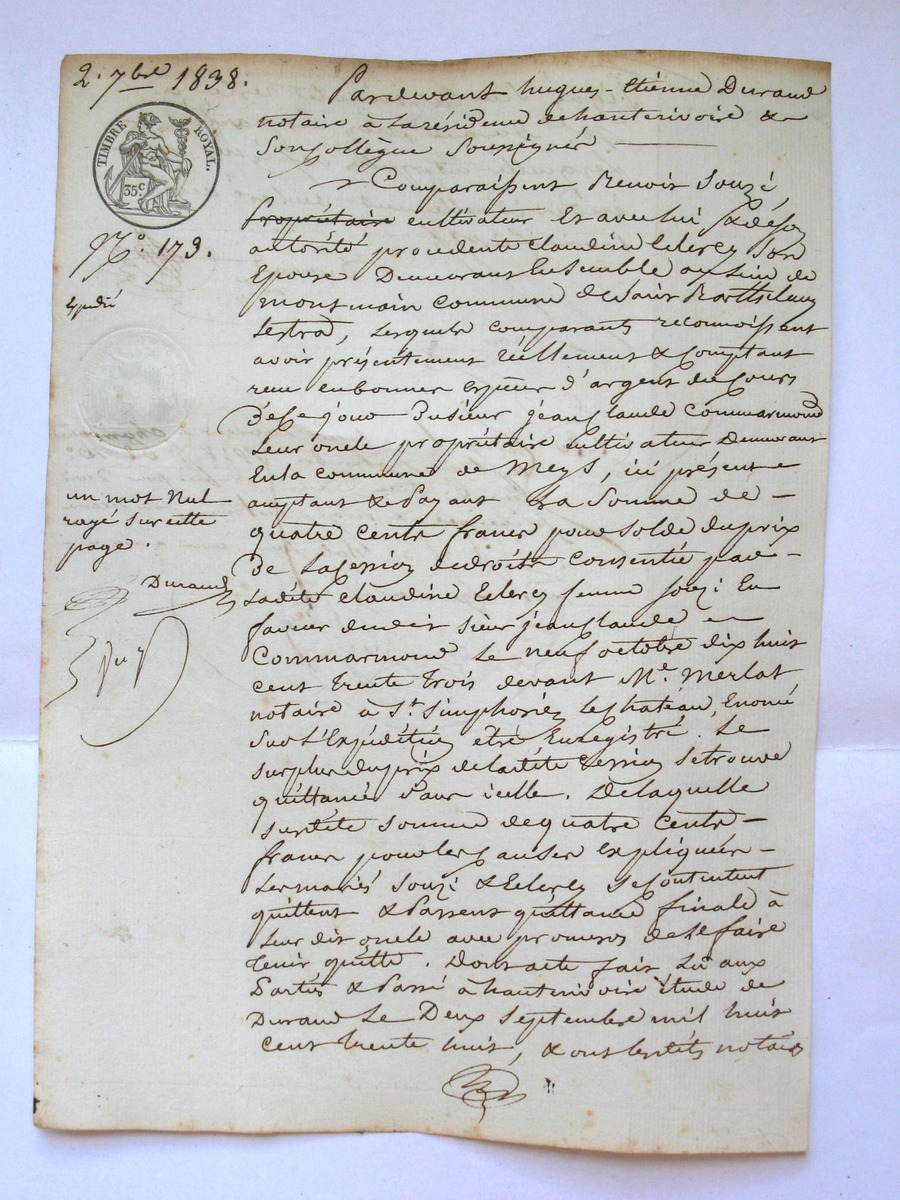 2. 7bre 1838.
TIMBRE ROYAL.
35c
No. 173.
expédié
Pardevant hugues-Etienne Durand
notaire à La résidence de hauterivoire &
Son Collègue Soussignés
Comparaissent Benoit Souzi,
Propriétaire cultivateur Et avec lui & de Son
autorité procédente Claudine Leclercq Son
Epouse Demeurant Ensemble au lieu de
montmain commune de Saint Barthelemy
Lestra, Lesquels comparants reconnoissent
avoir présentement réellement & Comptant
reçu en bonnes Espèces d'argent du Cours
De Ce jour Du sieur jean Claude Commarmond
Leur oncle propriétaire Cultivateur Demeurant
En la commune de Meys, ici présent
acceptant & Payant La Somme de
quatre cents francs pour Solde du prix
De La Cession de droits Consentie par
Ladite Claudine Leclercq femme Souzi En
faveur dudit sieur jean Claude
Commarmond Le neuf octobre dix huit
cent trente trois devant Me. Merlat
notaire à St. Simphorien Le Chatéau, Enoncé
Sur L'Expédition etre Enregistré. Le
surplus du prix de ladite Cession Se trouve
quittancé Par icelle. De laquelle
susdite somme de quatre Cents
francs pour les Causes Expliquées
Les mariés Souzi & Leclercq Se Contentent
quittent & Passent quittance finale à
Leur dit oncle avec promesse de Le faire
tenir quitte. Dont acte fait Lu aux
Parties & Passé à hauterivoire étude de
Durand Le Deux Septembre mil huit
cent trente huit, & ont Lesdits notaires
un mot Nul
rayé sur cette
page.
Durand